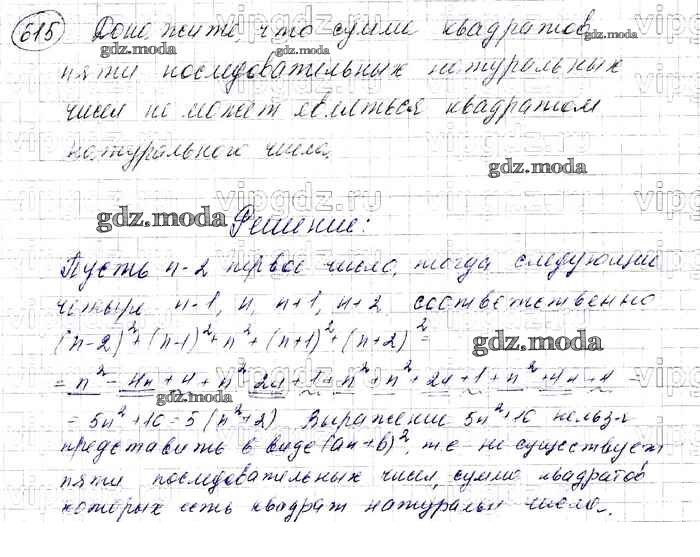 615 Докажите, что сумма квадратов
пяти последовательных натуральных
чисел не может являться квадратом
натурального числа.
Решение:
Пусть n-2 первое число, тогда следующие
четыре n-1, n, n+1, n+2 соответственно
(n-2)²+(n-1)²+n²+(n+1)²+(n+2)²=
=n²-4n+4+n² 2n+1+n²+n²+2n+1+n²+4n+4
=5n²+10=5(n²+2) Выражение 5n²+10 нельзя
представить в виде (an+b)², т.е. не существует
пяти последовательных чисел, сумма квадратов
которых есть квадрат натуральн числа.
gdz.moda
gdz.moda
gdz.moda
gdz.moda
gdz.moda
gdz.moda
vipgdz.ru
vipgdz.ru
vipgdz.ru